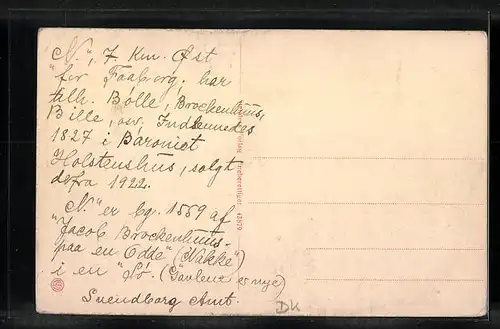 "N.", 7 Km. Øst
"for Faaborg; har
tilh. Bölle, Brockenhuus,
Bille, osv. Indlemmedes
1827 i Baroniet
Holstenshus, solgt
derfra 1922.
"N." er bg. 1559 af
"Jacob Brockenhuus-
paa en Odde" (Nakke)
i en "Sö. (Gavlene er nye)
Svendborg Amt.
DK
42579